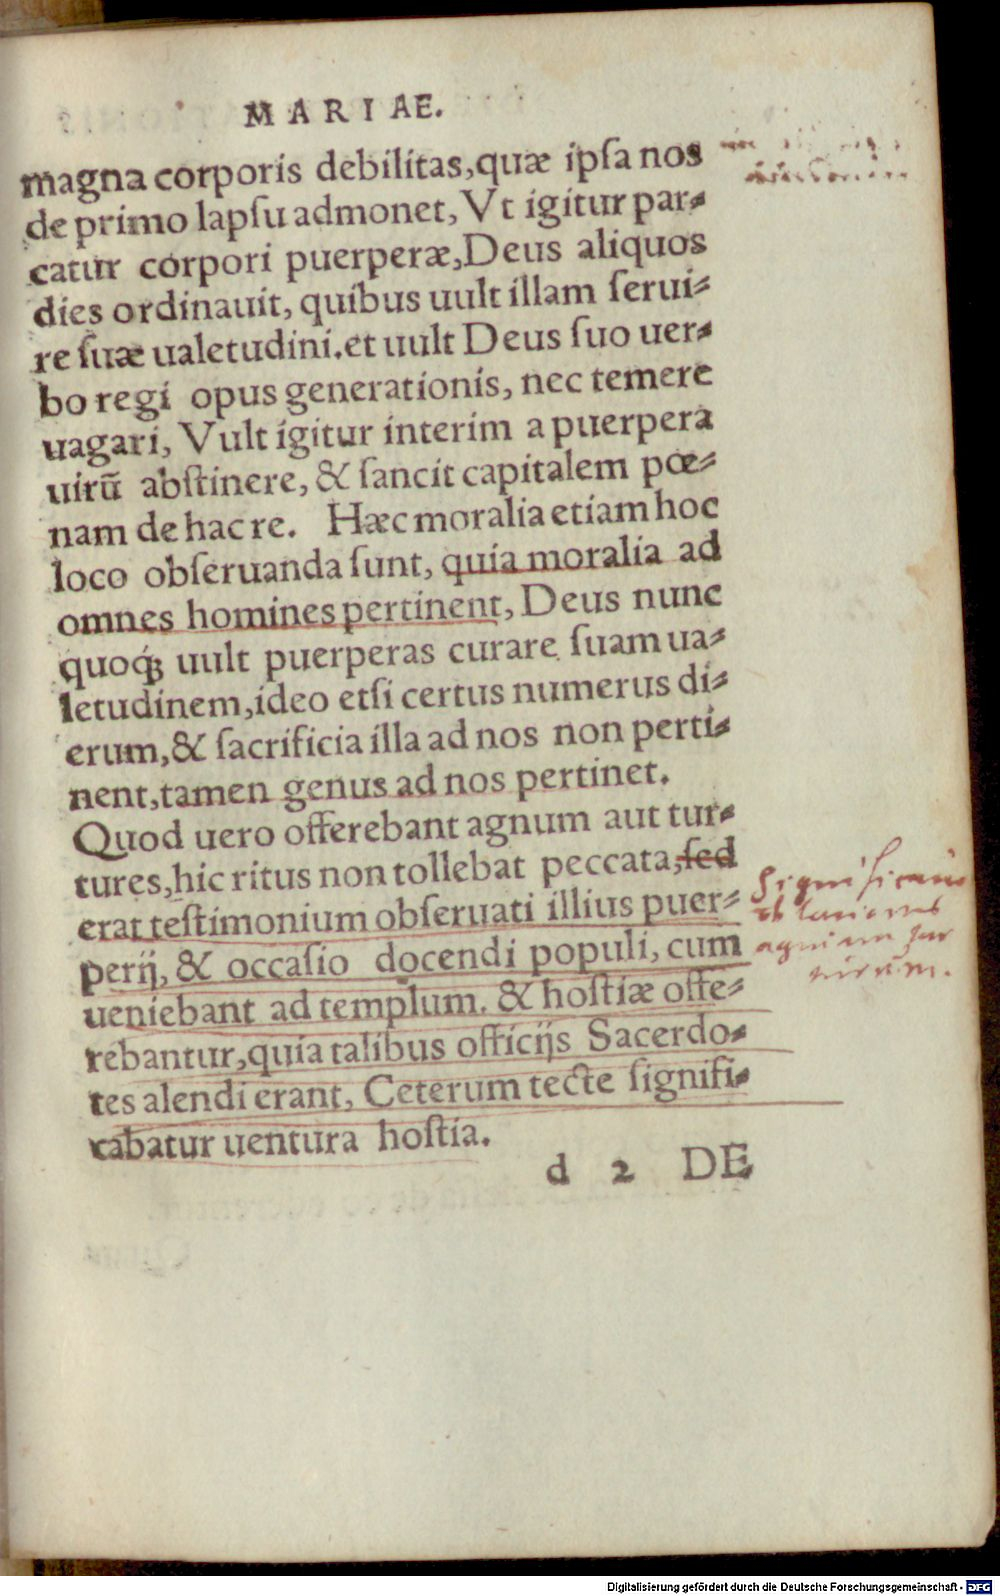 MARIAE.
magna corporis debilitas,quæ ipſa nos
de primo lapſu admonet, Vt igitur par⸗
catur corpori puerperæ,Deus aliquos
dies ordinauit, quibus uult illam ſerui⸗
re ſuæ ualetudini.et uult Deus ſuo uer⸗
bo regi opus generationis, nec temere
uagari, Vult igitur interim a puerpera
uirū abſtinere, & ſancit capitalem pœ⸗
nam de hac re. Hæc moralia etiam hoc
loco obſeruanda ſunt, quia moralia ad
omnes homines pertinent, Deus nunc
quoq́ꝫ uult puerperas curare ſuam ua⸗
letudinem,ideo etſi certus numerus di⸗
erum,& ſacrificia illa ad nos non perti⸗
nent,tamen genus ad nos pertinet.
Quod uero offerebant agnum aut tur⸗
tures,hic ritus non tollebat peccata,ſed
erat teſtimonium obſeruati illius puer⸗
perij, & occaſio docendi populi, cum
ueniebant ad templum. & hoſtiæ offe⸗
rebantur,quia talibus officijs Sacerdo⸗
tes alendi erant, Ceterum tecte ſignifi⸗
cabatur uentura hoſtia.
d 2 DE
Digitalisierung gefördert durch die Deutsche Forschungsgemeinschaft - DFG